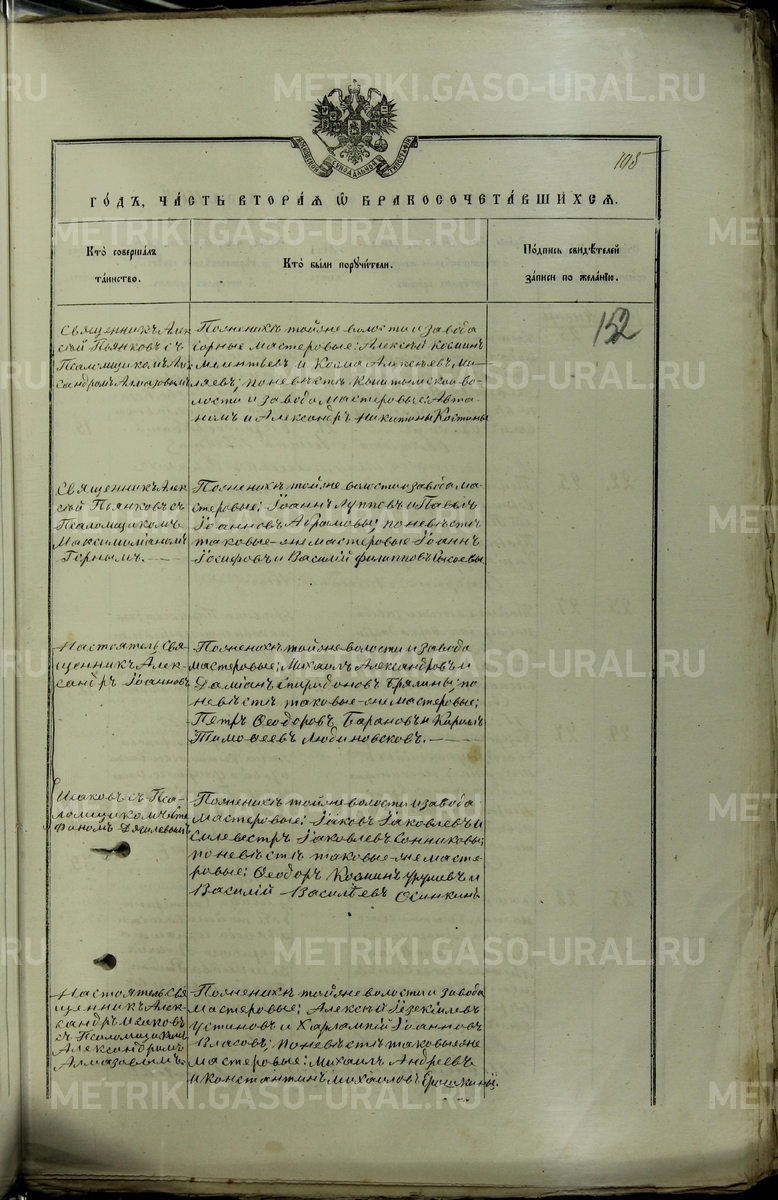 METRIKI.GASO-URAL.RU
195
СѴНОДАЛЬНОЙ ТИПОГРАФІИ
ГО́ДЪ, ЧА́СТЬ ВТОРА́Я Ѿ БРАКОСОЧЕТА́ВШИХСЯ.
Кто̀ соверша́лъ та́инство.
Кто̀ бы́ли порꙋчи́тели.
По́дпись свидѣ́телей за́писи по жела́нїю.
152
Священникъ Алек-
сѣй Пьянковъ съ
Псаломщикомъ Алек-
сандромъ Алмазовымъ
По женихѣ той же волости и завода
мастеровые: Алексѣй Косминъ
и Козма Алексѣевъ
по невѣстѣ Кыштымской во-
лости и завода мастеровые: Авто-
номъ и Александръ Никитины Костины
Священникъ Алек-
сѣй Пьянковъ съ
Псаломщикомъ
Максимиліаномъ
По женихѣ той же волости и завода ма-
стеровые: Іоаннъ Лупповъ и Павелъ
Іоанновъ Абрамовы; по невѣстѣ
таковые-же мастеровые Іоаннъ
Іосифовъ и Василій Филипповъ Сысоевы
Настоятель Свя-
щенникъ Алек-
сандръ Іоанновъ
По женихѣ той же волости и завода
мастеровые: Михаилъ Александровъ и
Даміанъ Спиридоновъ Брялины; по
невѣстѣ таковые-же мастеровые:
Петръ Ѳеодоровъ Барановъ и Кириллъ
Тимоѳеевъ Любиновсковъ.
Исаковъ съ Пса-
ломщикомъ Сте-
фаномъ
По женихѣ той же волости и завода
мастеровые: Іаковъ Іаковлевъ и
Силевестръ Іаковлевъ Сонниковы;
по невѣстѣ таковые-же масте-
ровые: Ѳеодоръ Косминъ Урушевъ и
Василій Васильевъ Осинкинъ
Настоятель Свя-
щенникъ Алек-
сандръ Исаковъ
съ Псаломщикомъ
Александромъ
Алмазовымъ.
По женихѣ той же волости и завода
мастеровые: Алексѣй Іезекіилевъ
Устиновъ и Харлампій Іоанновъ
Власовъ; по невѣстѣ таковые же
мастеровые: Михаилъ Андреевъ
и Константинъ Михаиловъ Ерошкины.